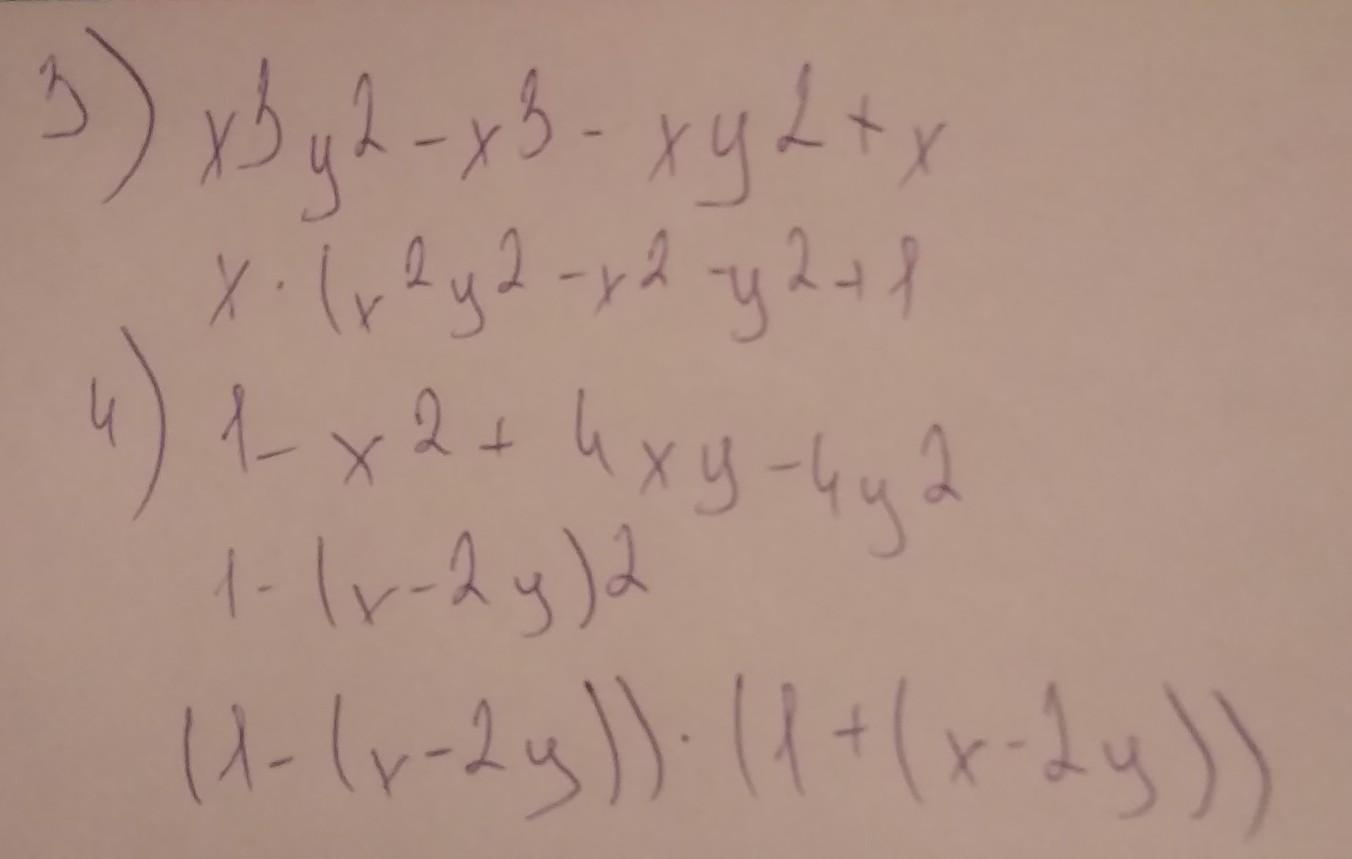 3) x3y2-x3-xy2+x
x·(x2y2-x2-y2+1
4) 1-x2+4xy-4y2
1-(x-2y)2
(1-(x-2y))·(1+(x-2y))